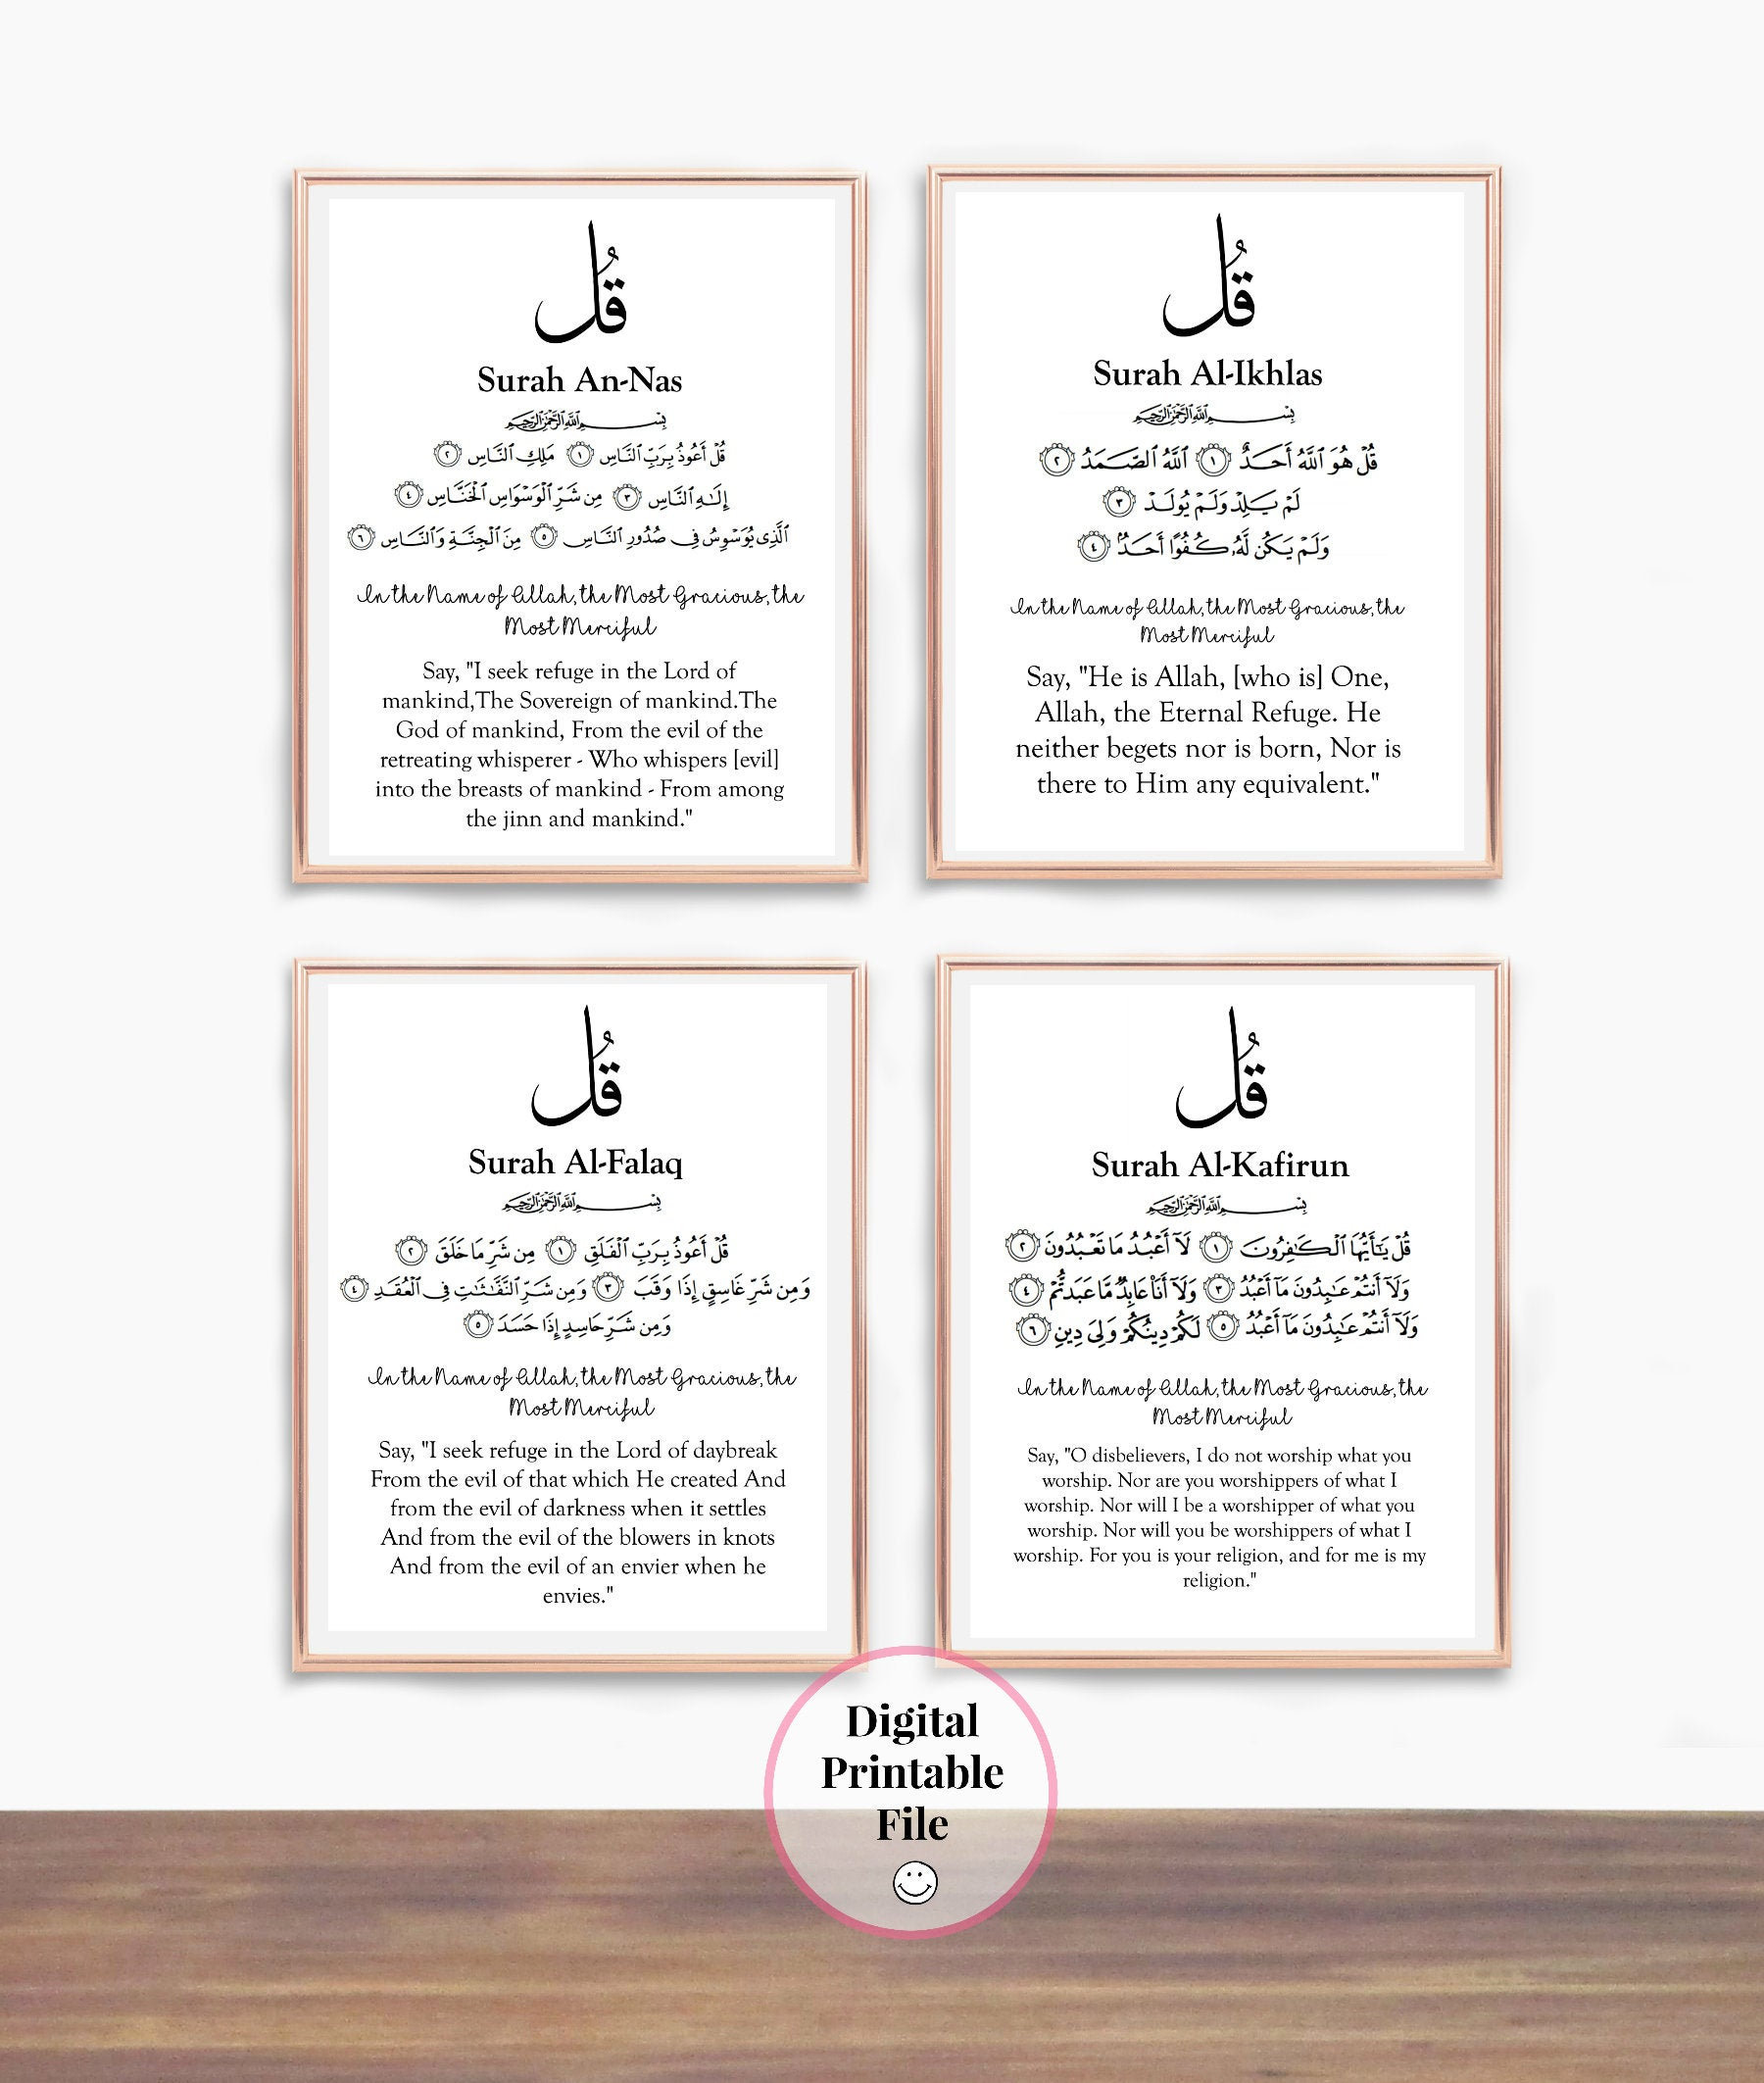 قُل
Surah An-Nas
بِسْمِ ٱللَّهِ ٱلرَّحْمَٰنِ ٱلرَّحِيمِ
قُلْ أَعُوذُ بِرَبِّ ٱلنَّاسِ ١ مَلِكِ ٱلنَّاسِ ٢
إِلَٰهِ ٱلنَّاسِ ٣ مِن شَرِّ ٱلْوَسْوَاسِ ٱلْخَنَّاسِ ٤
ٱلَّذِى يُوَسْوِسُ فِى صُدُورِ ٱلنَّاسِ ٥ مِنَ ٱلْجِنَّةِ وَٱلنَّاسِ ٦
In the Name of Allah, the Most Gracious, the
Most Merciful
Say, "I seek refuge in the Lord of
mankind,The Sovereign of mankind.The
God of mankind, From the evil of the
retreating whisperer - Who whispers [evil]
into the breasts of mankind - From among
the jinn and mankind."
قُل
Surah Al-Ikhlas
بِسْمِ ٱللَّهِ ٱلرَّحْمَٰنِ ٱلرَّحِيمِ
قُلْ هُوَ ٱللَّهُ أَحَدٌ ١ ٱللَّهُ ٱلصَّمَدُ ٢
لَمْ يَلِدْ وَلَمْ يُولَدْ ٣
وَلَمْ يَكُن لَّهُۥ كُفُوًا أَحَدٌۢ ٤
In the Name of Allah, the Most Gracious, the
Most Merciful
Say, "He is Allah, [who is] One,
Allah, the Eternal Refuge. He
neither begets nor is born, Nor is
there to Him any equivalent."
قُل
Surah Al-Falaq
بِسْمِ ٱللَّهِ ٱلرَّحْمَٰنِ ٱلرَّحِيمِ
قُلْ أَعُوذُ بِرَبِّ ٱلْفَلَقِ ١ مِن شَرِّ مَا خَلَقَ ٢
وَمِن شَرِّ غَاسِقٍ إِذَا وَقَبَ ٣ وَمِن شَرِّ ٱلنَّفَّٰثَٰتِ فِى ٱلْعُقَدِ ٤
وَمِن شَرِّ حَاسِدٍ إِذَا حَسَدَ ٥
In the Name of Allah, the Most Gracious, the
Most Merciful
Say, "I seek refuge in the Lord of daybreak
From the evil of that which He created And
from the evil of darkness when it settles
And from the evil of the blowers in knots
And from the evil of an envier when he
envies."
قُل
Surah Al-Kafirun
بِسْمِ ٱللَّهِ ٱلرَّحْمَٰنِ ٱلرَّحِيمِ
قُلْ يَٰٓأَيُّهَا ٱلْكَٰفِرُونَ ١ لَآ أَعْبُدُ مَا تَعْبُدُونَ ٢
وَلَآ أَنتُمْ عَٰبِدُونَ مَآ أَعْبُدُ ٣ وَلَآ أَنَا۠ عَابِدٌ مَّا عَبَدتُّمْ ٤
وَلَآ أَنتُمْ عَٰبِدُونَ مَآ أَعْبُدُ ٥ لَكُمْ دِينُكُمْ وَلِىَ دِينِ ٦
In the Name of Allah, the Most Gracious, the
Most Merciful
Say, "O disbelievers, I do not worship what you
worship. Nor are you worshippers of what I
worship. Nor will I be a worshipper of what you
worship. Nor will you be worshippers of what I
worship. For you is your religion, and for me is my
religion."
Digital
Printable
File